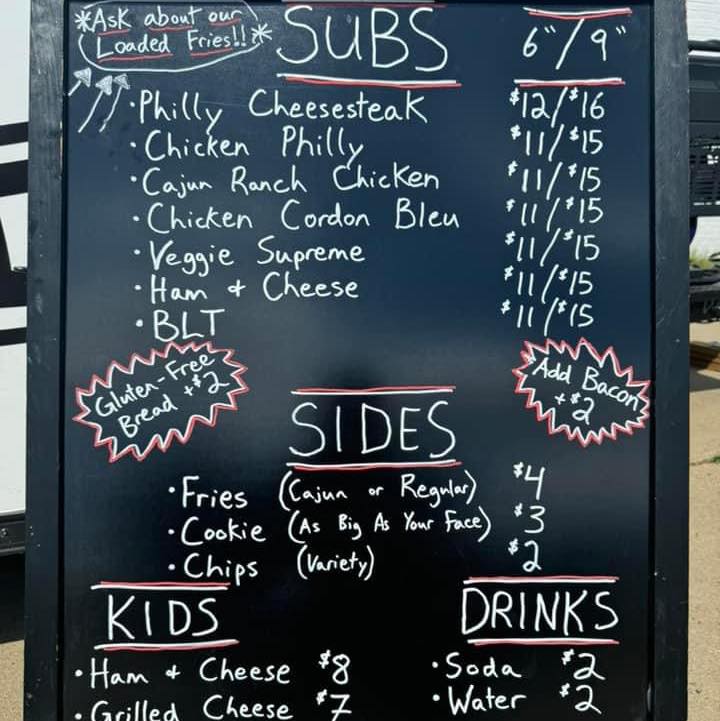 *Ask about our
Loaded Fries!!*
SUBS 6"/9"
·Philly Cheesesteak $12/$16
·Chicken Philly $11/$15
·Cajun Ranch Chicken $11/$15
·Chicken Cordon Bleu $11/$15
·Veggie Supreme $11/$15
·Ham + Cheese $11/$15
·BLT $11/$15
Gluten-Free
Bread +$2
Add Bacon
+$2
SIDES
·Fries (Cajun or Regular) $4
·Cookie (As Big As Your Face) $3
·Chips (Variety) $2
KIDS
·Ham + Cheese $8
·Grilled Cheese $7
DRINKS
·Soda $2
·Water $2